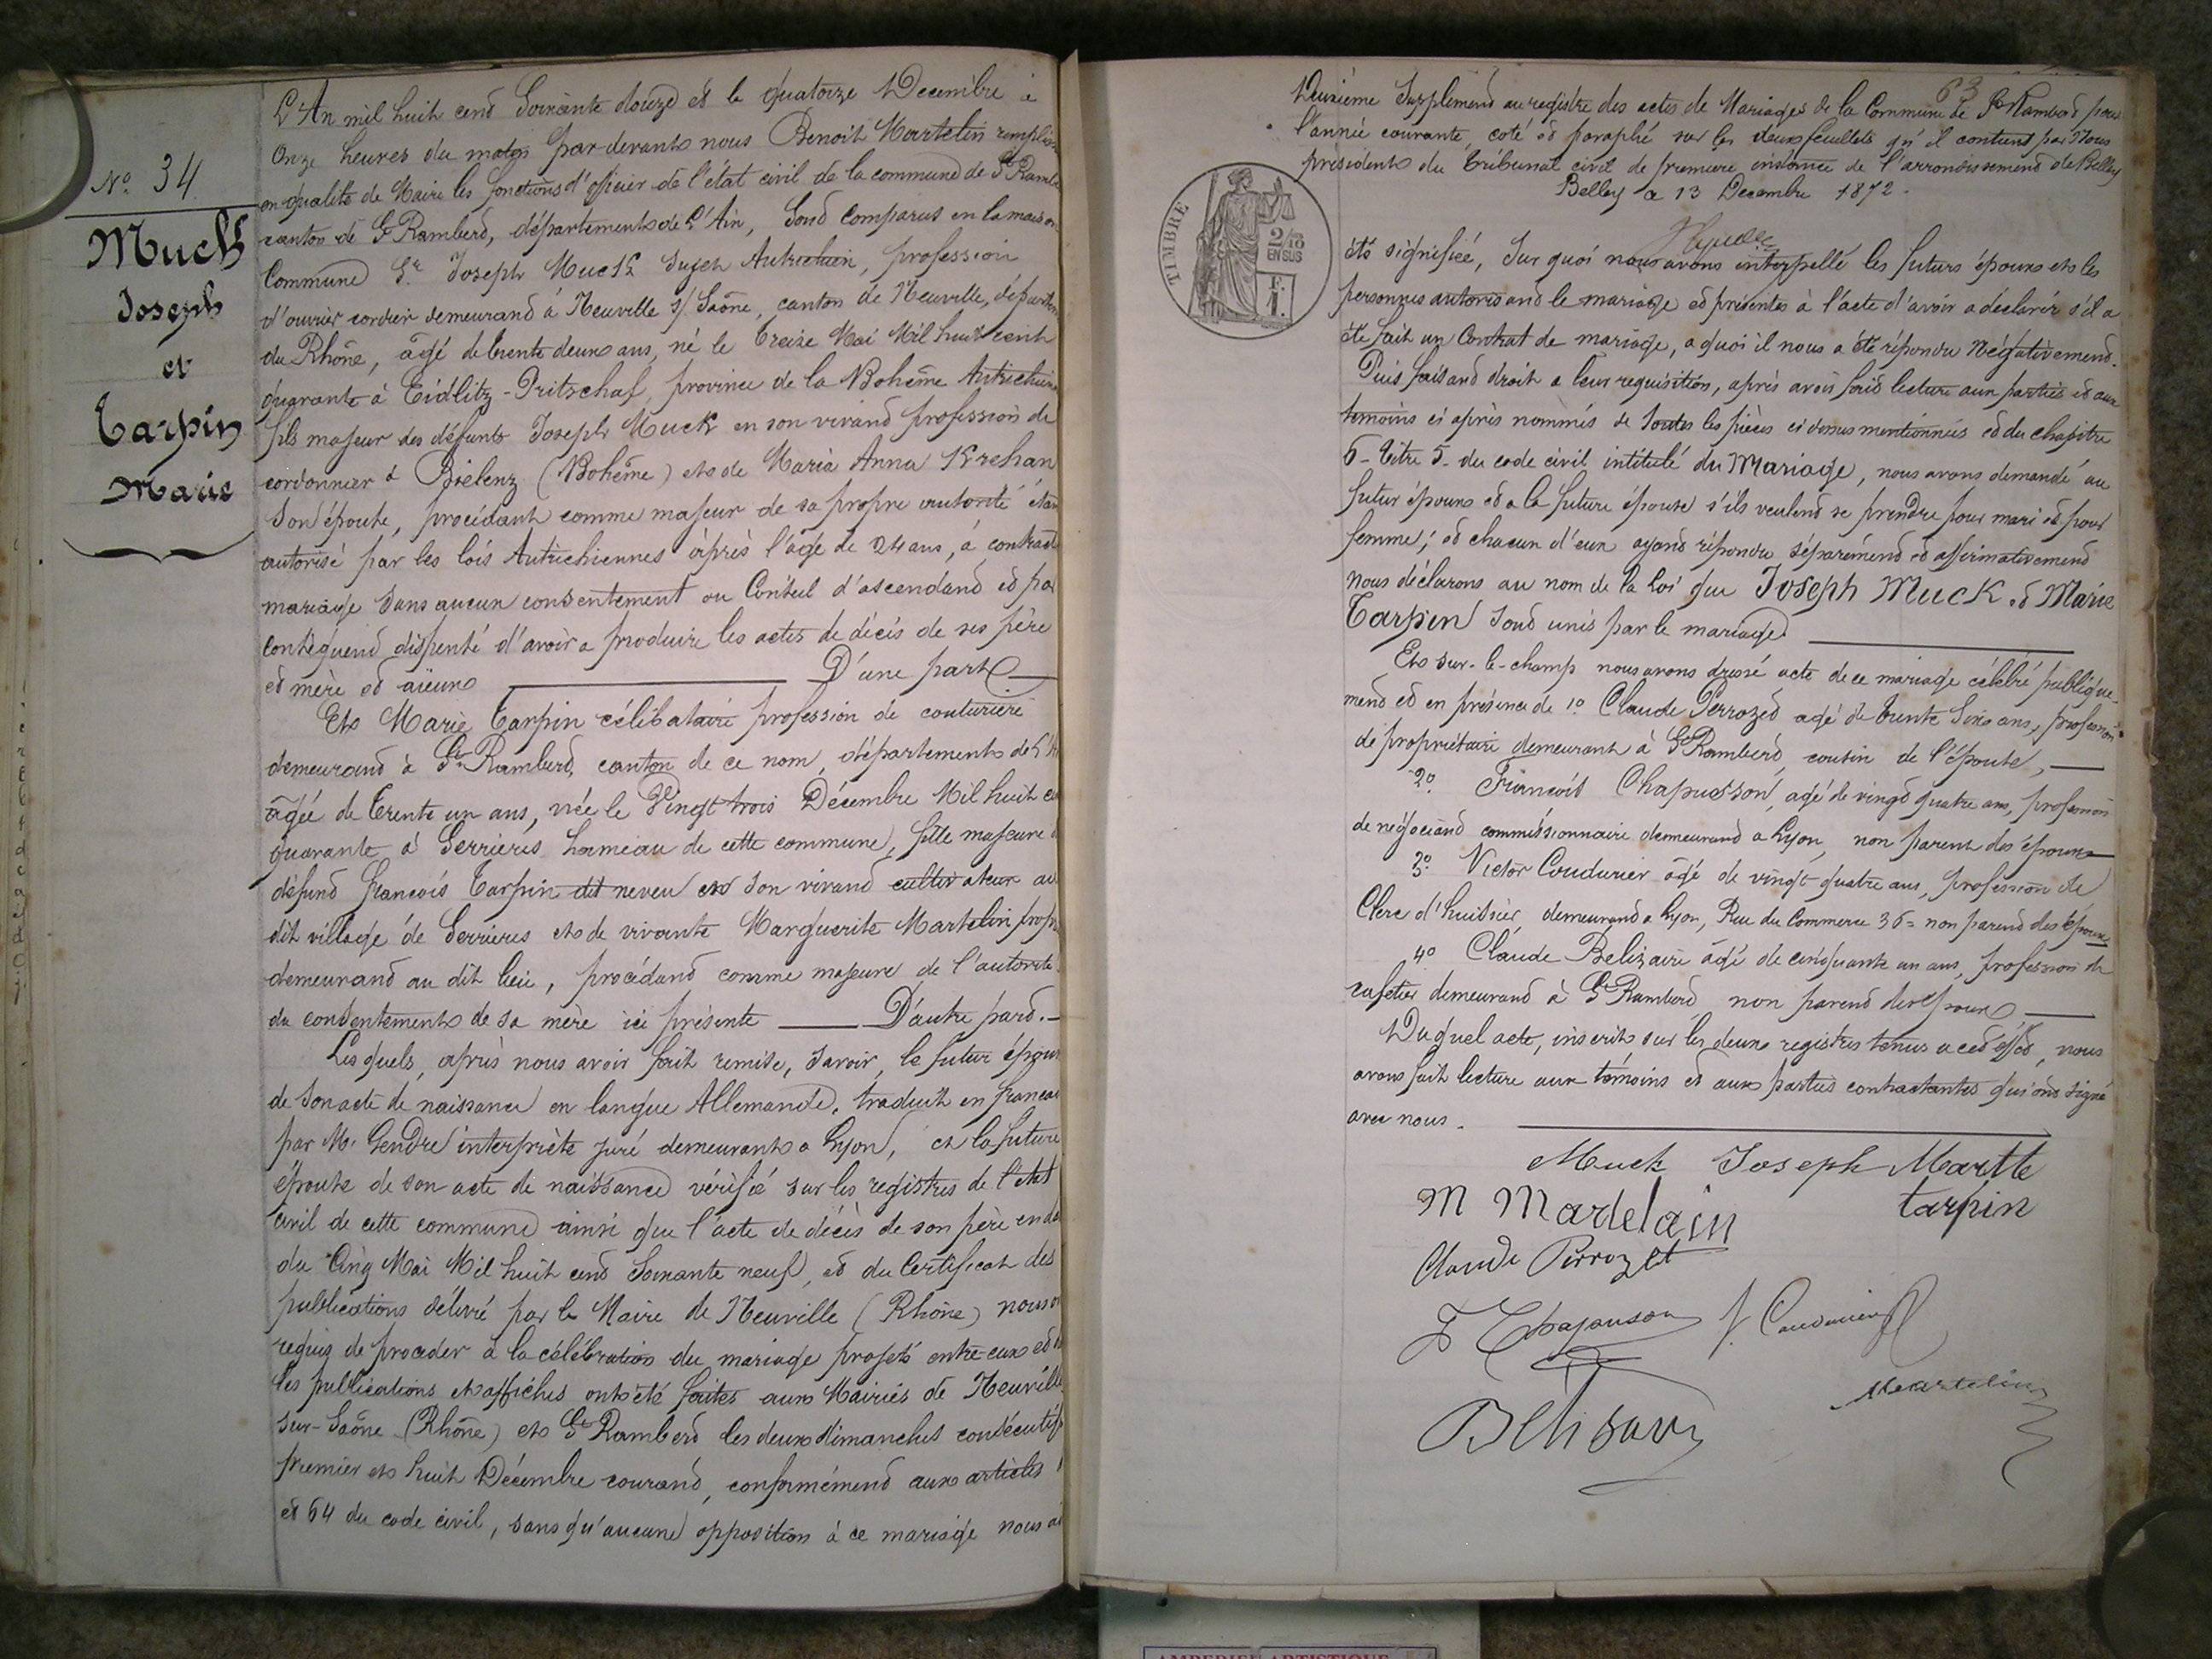 N° 34.
Muck
Joseph
et
Tarpin
Marie
L'An mil huit cent Soixante douze et le quatorze Decembre à
Onze heures du matin par devant nous Benoit Martelin remplissant
en qualité de Maire les fonctions d'officier de l'état civil de la commune de St Rambert
canton de St Rambert, département de L'Ain, Sont Comparus en la maison
Commune Sr. Joseph Muck Sujet Autrichien, profession
d'ouvrier cordier demeurant à Neuville s/ Saône, canton de Neuville, départem
du Rhône, âgé de trente deux ans, né le treize Mai Mil huit cent
quarante à Eidlitz-Pritschaf, province de la Bohême Autrichien
fils majeur des défunts Joseph Muck en son vivant profession de
cordonnier à Bielenz (Bohême) et de Maria Anna Krehan
Son épouse, procédant comme majeur de sa propre autorité étan
autorisé par les lois Autrichiennes après l'age de 24 ans, à contract
mariage Sans aucun consentement ou Conseil d'ascendant et par
Conséquent dispensé d'avoir a produire les actes de décès de ses père
et mère et aïeux D'une part
Et Marie Tarpin célibataire profession de couturière
demeurant à St Rambert, canton de ce nom, département de L'A
âgée de trente un ans, née le Vingt trois Décembre Mil huit ce
quarante à Serrières hameau de cette commune, fille majeure d
défunt François Tarpin dit neveu en Son vivant cultivateur au
dit village de Serrières et de vivante Marguerite Martelin prop
demeurant au dit lieu, procédant comme majeure de l'autorité
du consentement de sa mère ici présente D'autre part.
Lesquels, après nous avoir fait remise, Savoir, le futur époux
de Son acte de naissance en langue Allemande, traduit en françai
par Mr. Gendre interprète juré demeurant a Lyon, et la future
épouse de son acte de naissance vérifié sur les registres de l'état
civil de cette commune ainsi que l'acte de décès de son père en da
du Cinq Mai Mil huit cent Soixante neuf, et du Certificat des
publications délivré par le Maire de Neuville (Rhône) nous o
requis de proceder à la célébration du mariage projeté entre eux et d
les publications et affiches ont été faites aux Mairies de Neuville
sur-Saône (Rhône) et St Rambert les deux dimanches consécutifs
premier et huit Décembre courant, conformément aux articles
et 64 du code civil, sans qu'aucune opposition à ce mariage nous ai
63
Deuxième Supplement au registre des actes de Mariages de la Commune de St Rambert pour
l'année courante, coté et paraphé sur les deux feuillets qu'il contient par Nous
président du Tribunal civil de premiere instance de l'arrondissement de Belley
Belley le 13 Decembre 1872.
TIMBRE
2/10 EN SUS
F. 1.
été signifiée, Sur quoi nous avons interpellé les futurs époux et les
personnes autorisant le mariage et présentes à l'acte d'avoir a déclarer s'il a
été fait un Contrat de mariage, a quoi il nous a été répondu Négativement.
Puis faisant droit a leur requisition, après avoir fait lecture aux parties et aux
temoins ci après nommés de toutes les pièces ci dessus mentionnées et du chapitre
6 - titre 5 - du code civil intitulé du Mariage, nous avons demandé au
futur époux et a la future épouse s'ils veulent se prendre pour mari et pour
femme; et chacun d'eux ayant répondu séparément et affirmativement
nous déclarons au nom de la Loi que Joseph Muck et Marie
Tarpin Sont unis par le mariage
Et sur-le-champ nous avons dressé acte de ce mariage célébré publique-
ment et en présence de 1° Claude Perrozet agé de trente Six ans, profession
de propriétaire demeurant à St Rambert, cousin de l'épouse,
2° François Chapusson, agé de vingt quatre ans, profession
de négociant commissionnaire demeurant a Lyon, non parent des époux
3° Victor Coudurier âgé de vingt quatre ans, profession de
Clerc d'huissier, demeurant a Lyon, Rue du Commerce 36 = non parent des époux
4° Claude Belizaire âgé de cinquante un ans, profession de
cafetier demeurant à St Rambert, non parent des époux
Duquel acte, inscrit sur les deux registres tenus a cet effet, nous
avons fait lecture aux témoins et aux parties contractantes qui ont signé
avec nous.
Muck Joseph Martte
M Martelain tarpin
Claude Perrozet
F Chapuson V. Coudurier
Martelin
Belisair
AMBERIEU ARTISTIQUE